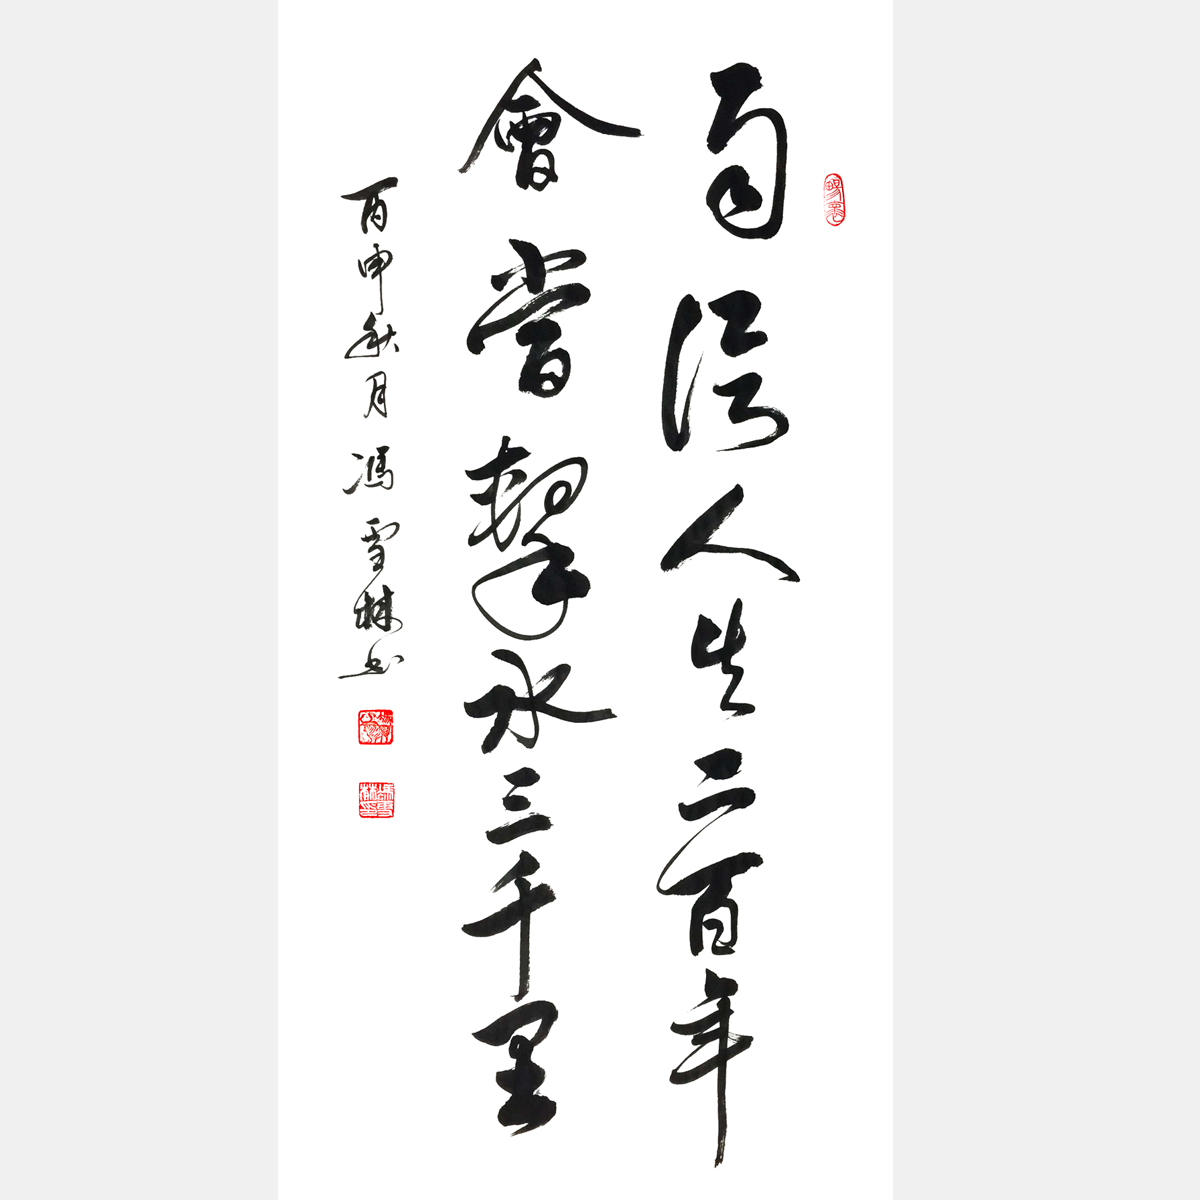 自信人生二百年
會當擊水三千里
丙申秋月馮雪林書